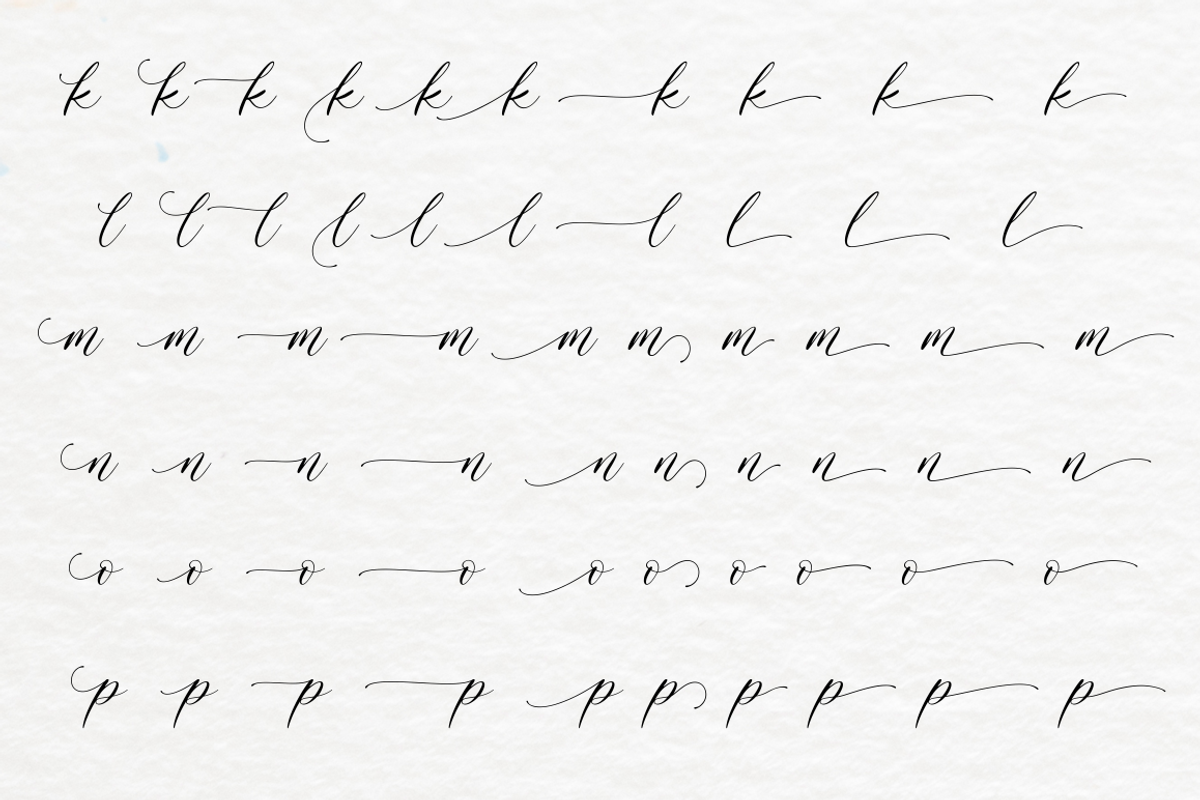 k k k k k k k k k k
l l l l l l l l l l
m m m m m m m m m m
n n n n n n n n n n
o o o o o o o o o o
p p p p p p p p p p